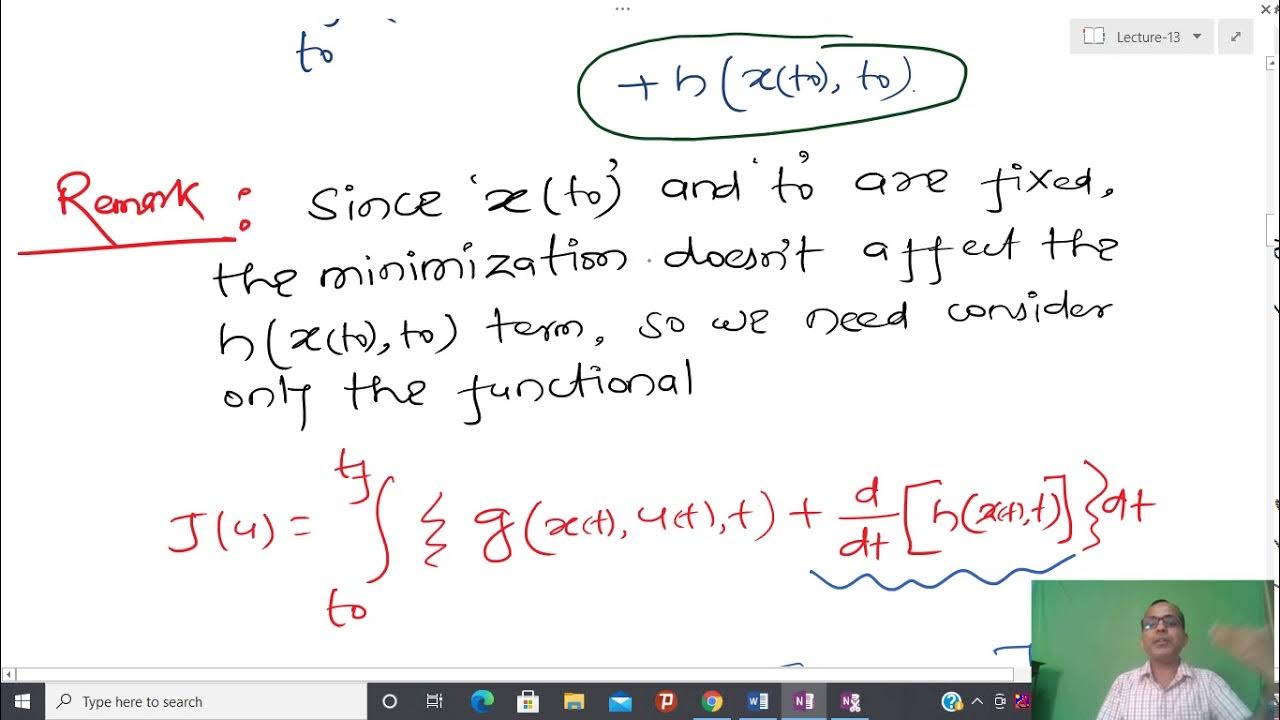 t₀
Lecture-13
+ h(x(t₀), t₀).
Remark : Since 'x(t₀)' and 't₀' are fixed,
the minimization doesn't affect the
h(x(t₀), t₀) term, so we need consider
only the functional
t_f
J(u) = ∫ { g(x(t), u(t), t) + d/dt [h(x(t), t)] } dt
t₀
Type here to search